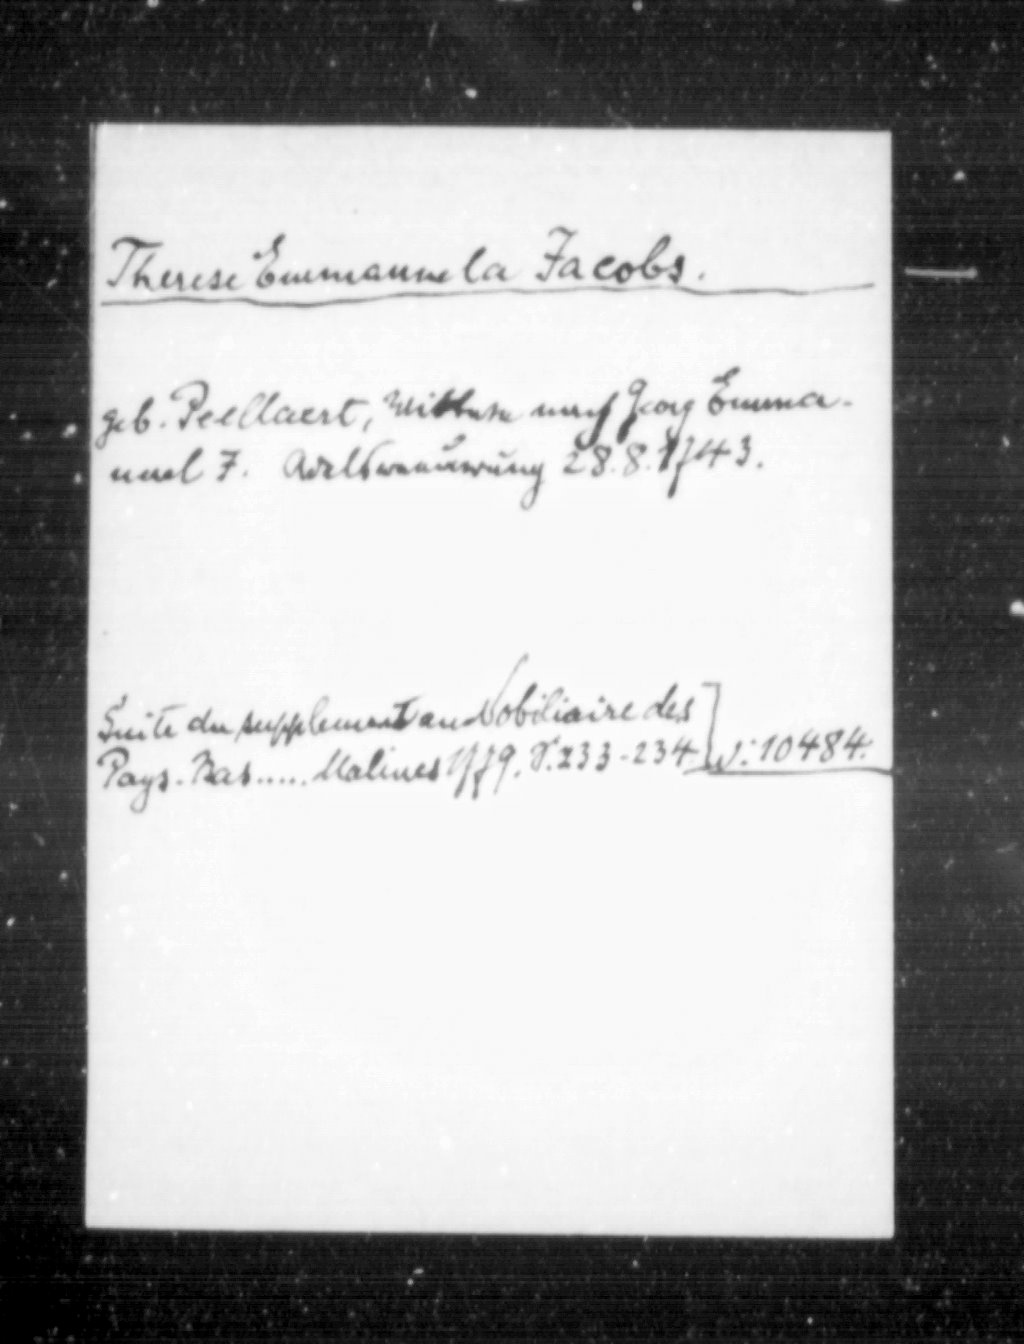 Therese Emmanuela Jacobs.
geb. Peellaert, Wittwe nach Georg Emma-
nuel J. Adelserneuerung 28.8.1743.
Suite du supplement au Nobiliaire des
Pays-Bas..... Malines 1779. S. 233-234] W: 10484.